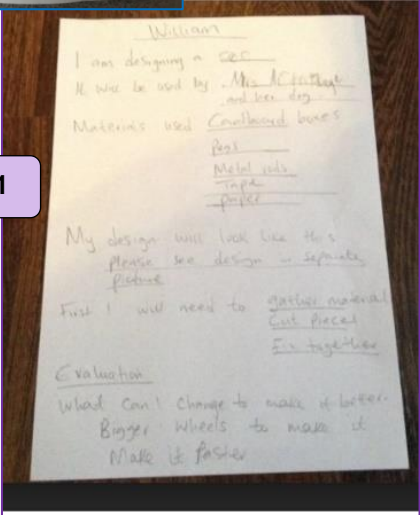 William
I am designing a car
It will be used by Mrs
and her dog
Materials used Cardboard boxes
Pegs
Metal rods
Tape
paper
My design will look like this
please see design in separate
picture
First I will need to gather material
Cut pieces
Fix together
Evaluation
What Can I Change to make it better.
Bigger Wheels to make it
Make it faster
1